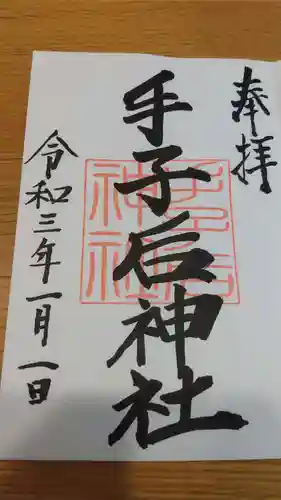 奉拝
手子后神社
令和三年一月一日